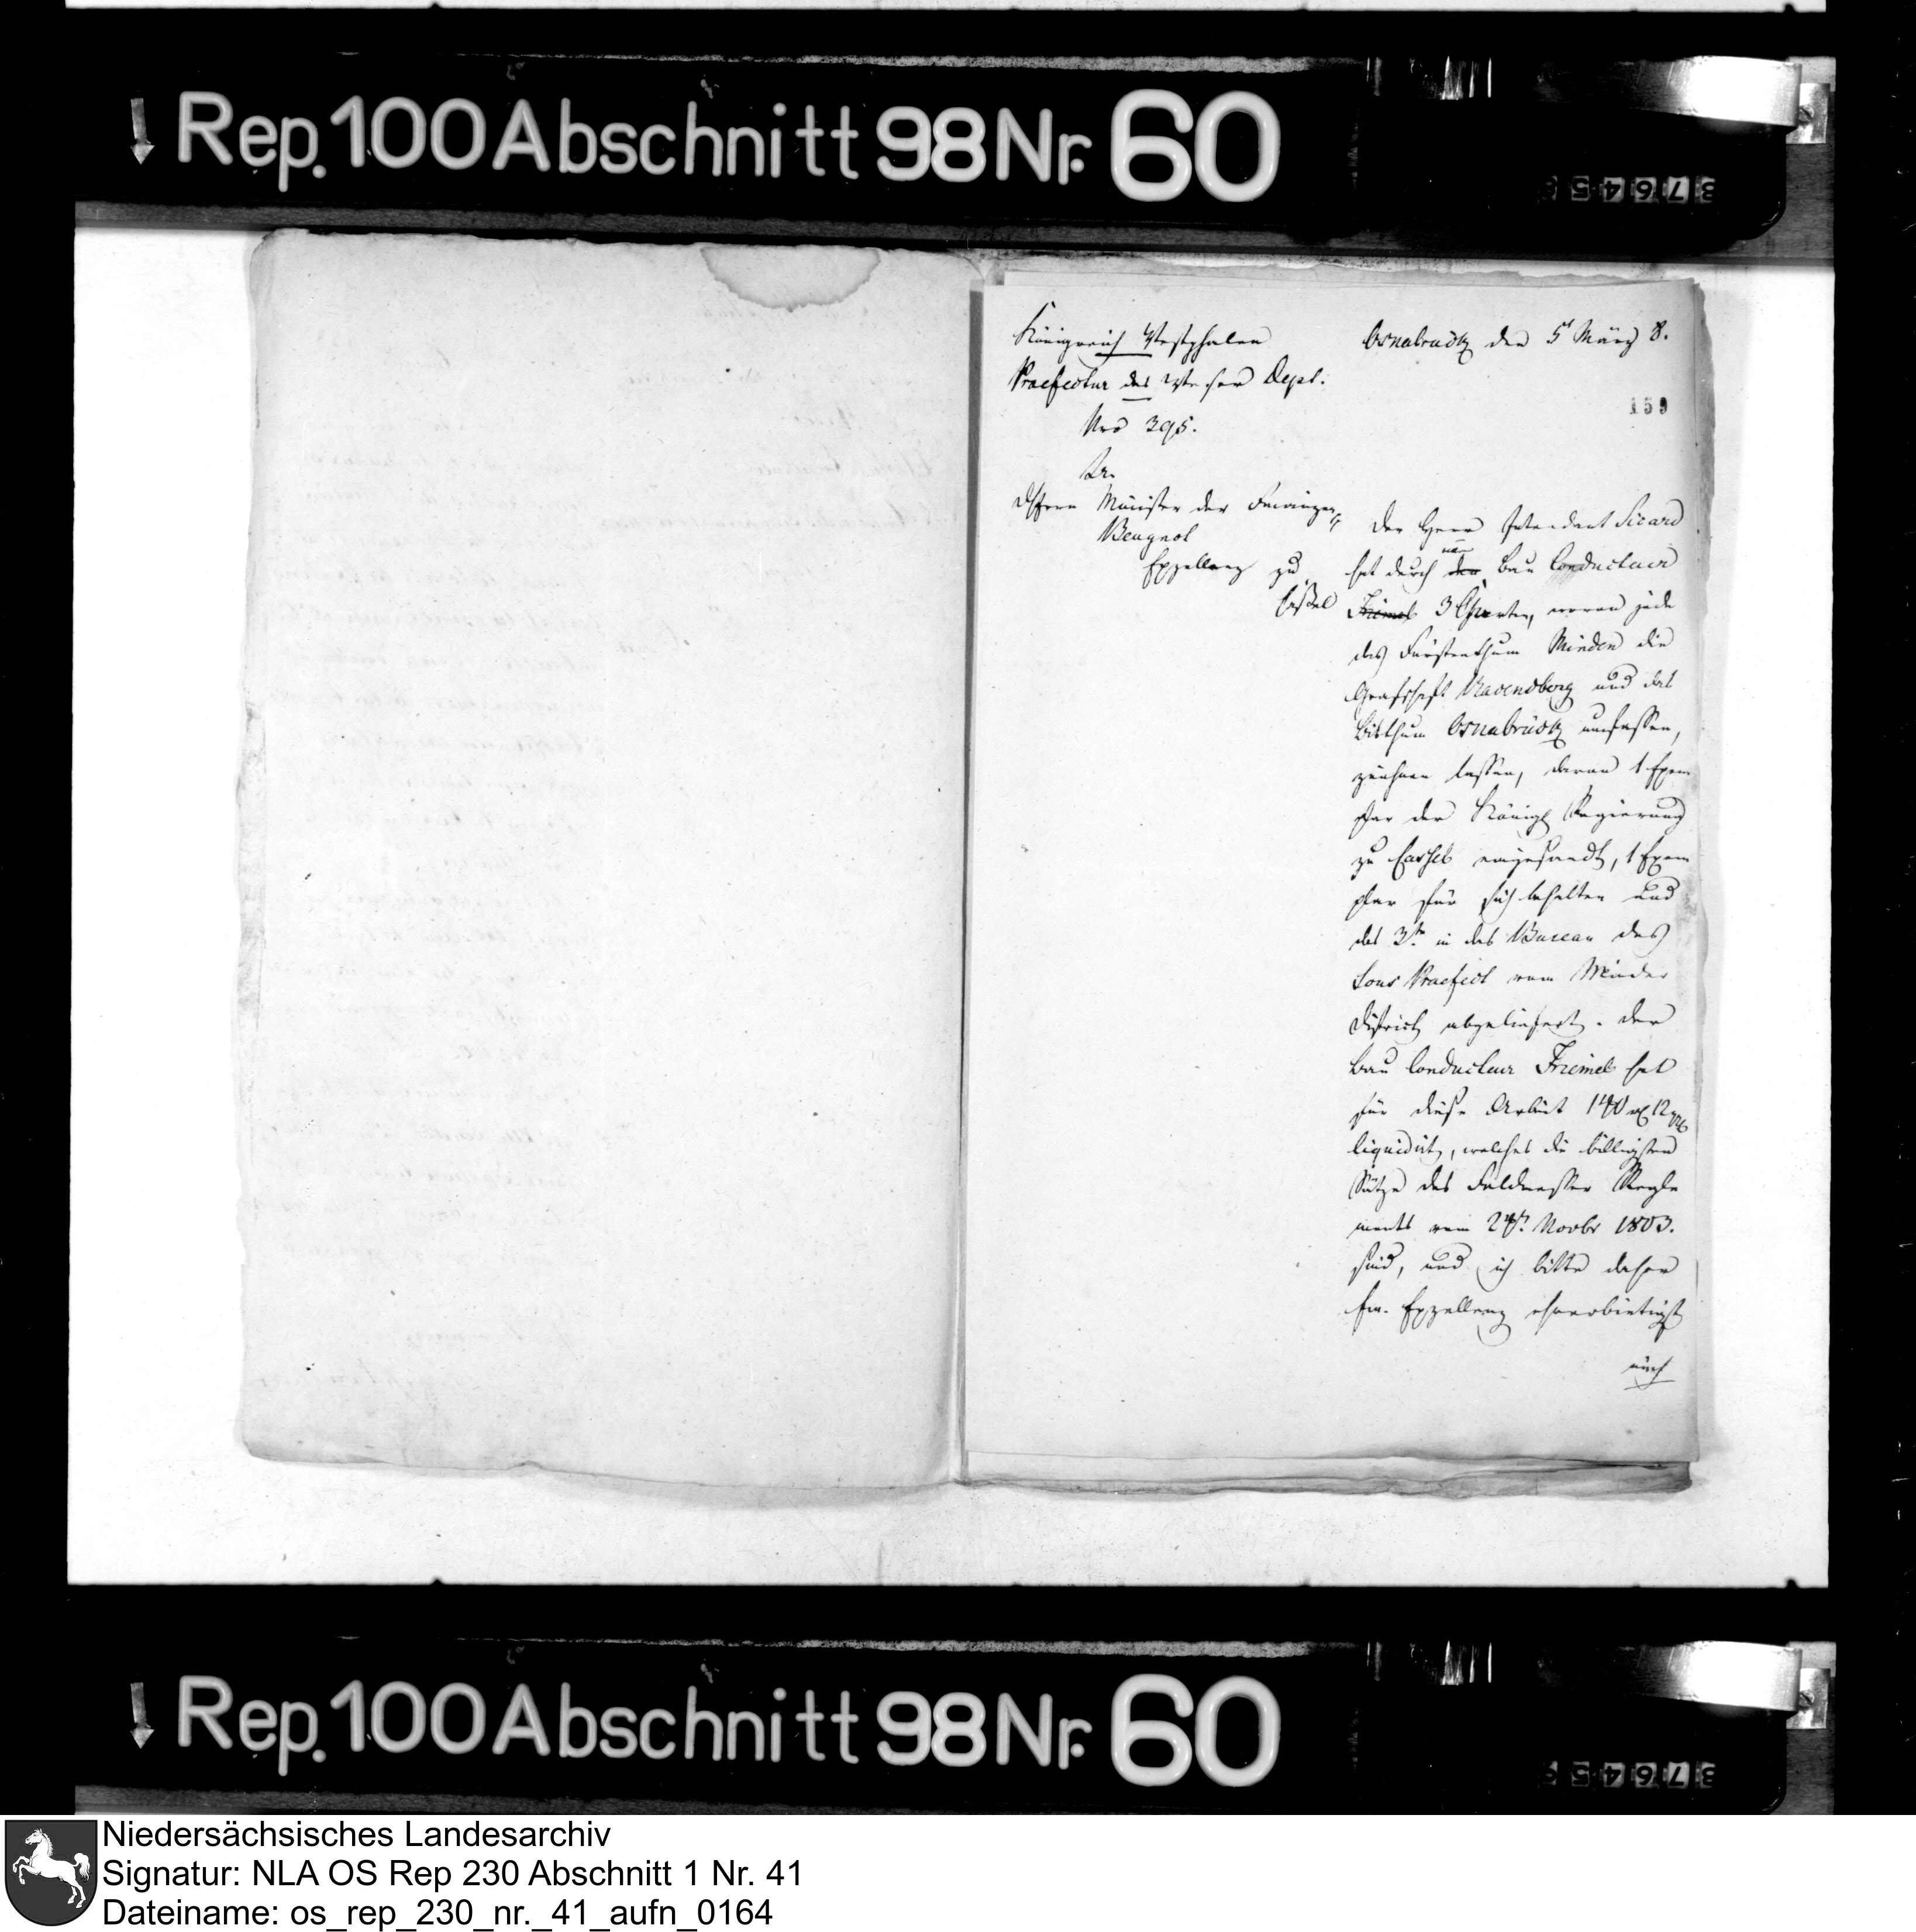 Rep. 100 Abschnitt 98 Nr. 60
Königreich Westphalen
Praefectur des Weser Dept.
Nro 395.
An
Herrn Minister der Finanzen
Beugnot
Exzellenz zu
Cassel
Osnabrück den 5t März 8.
159
Der Herr Intendant Sicard
hat durch den Bau Conducteur
Friemel 3 Charten, wovon jede
das Fürstenthum Minden die
Grafschaft Ravensberg und das
Bisthum Osnabrück umfassen,
zeichnen lassen, davon 1 Exem
plar der Königl Regierung
zu Cassel eingesandt, 1 Exem
plar für sich behalten und
das 3te in das Bureau des
Sous Praefect vom Minder
District abgeliefert. Der
Bau Conducteur Friemel hat
für diese Arbeit 140 rt 12 ggr
liquidirt, welches die billigsten
Sätze des Feldmesser Regle
ments vom Novbr 1803.
sind, und ich bitte daher
Ew. Exzellenz ehrerbietigst
mich
Rep. 100 Abschnitt 98 Nr. 60
Niedersächsisches Landesarchiv
Signatur: NLA OS Rep 230 Abschnitt 1 Nr. 41
Dateiname: os_rep_230_nr._41_aufn_0164